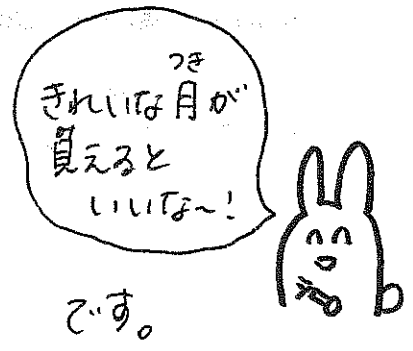 きれいな月が
つき
見えると
いいな〜!
です。